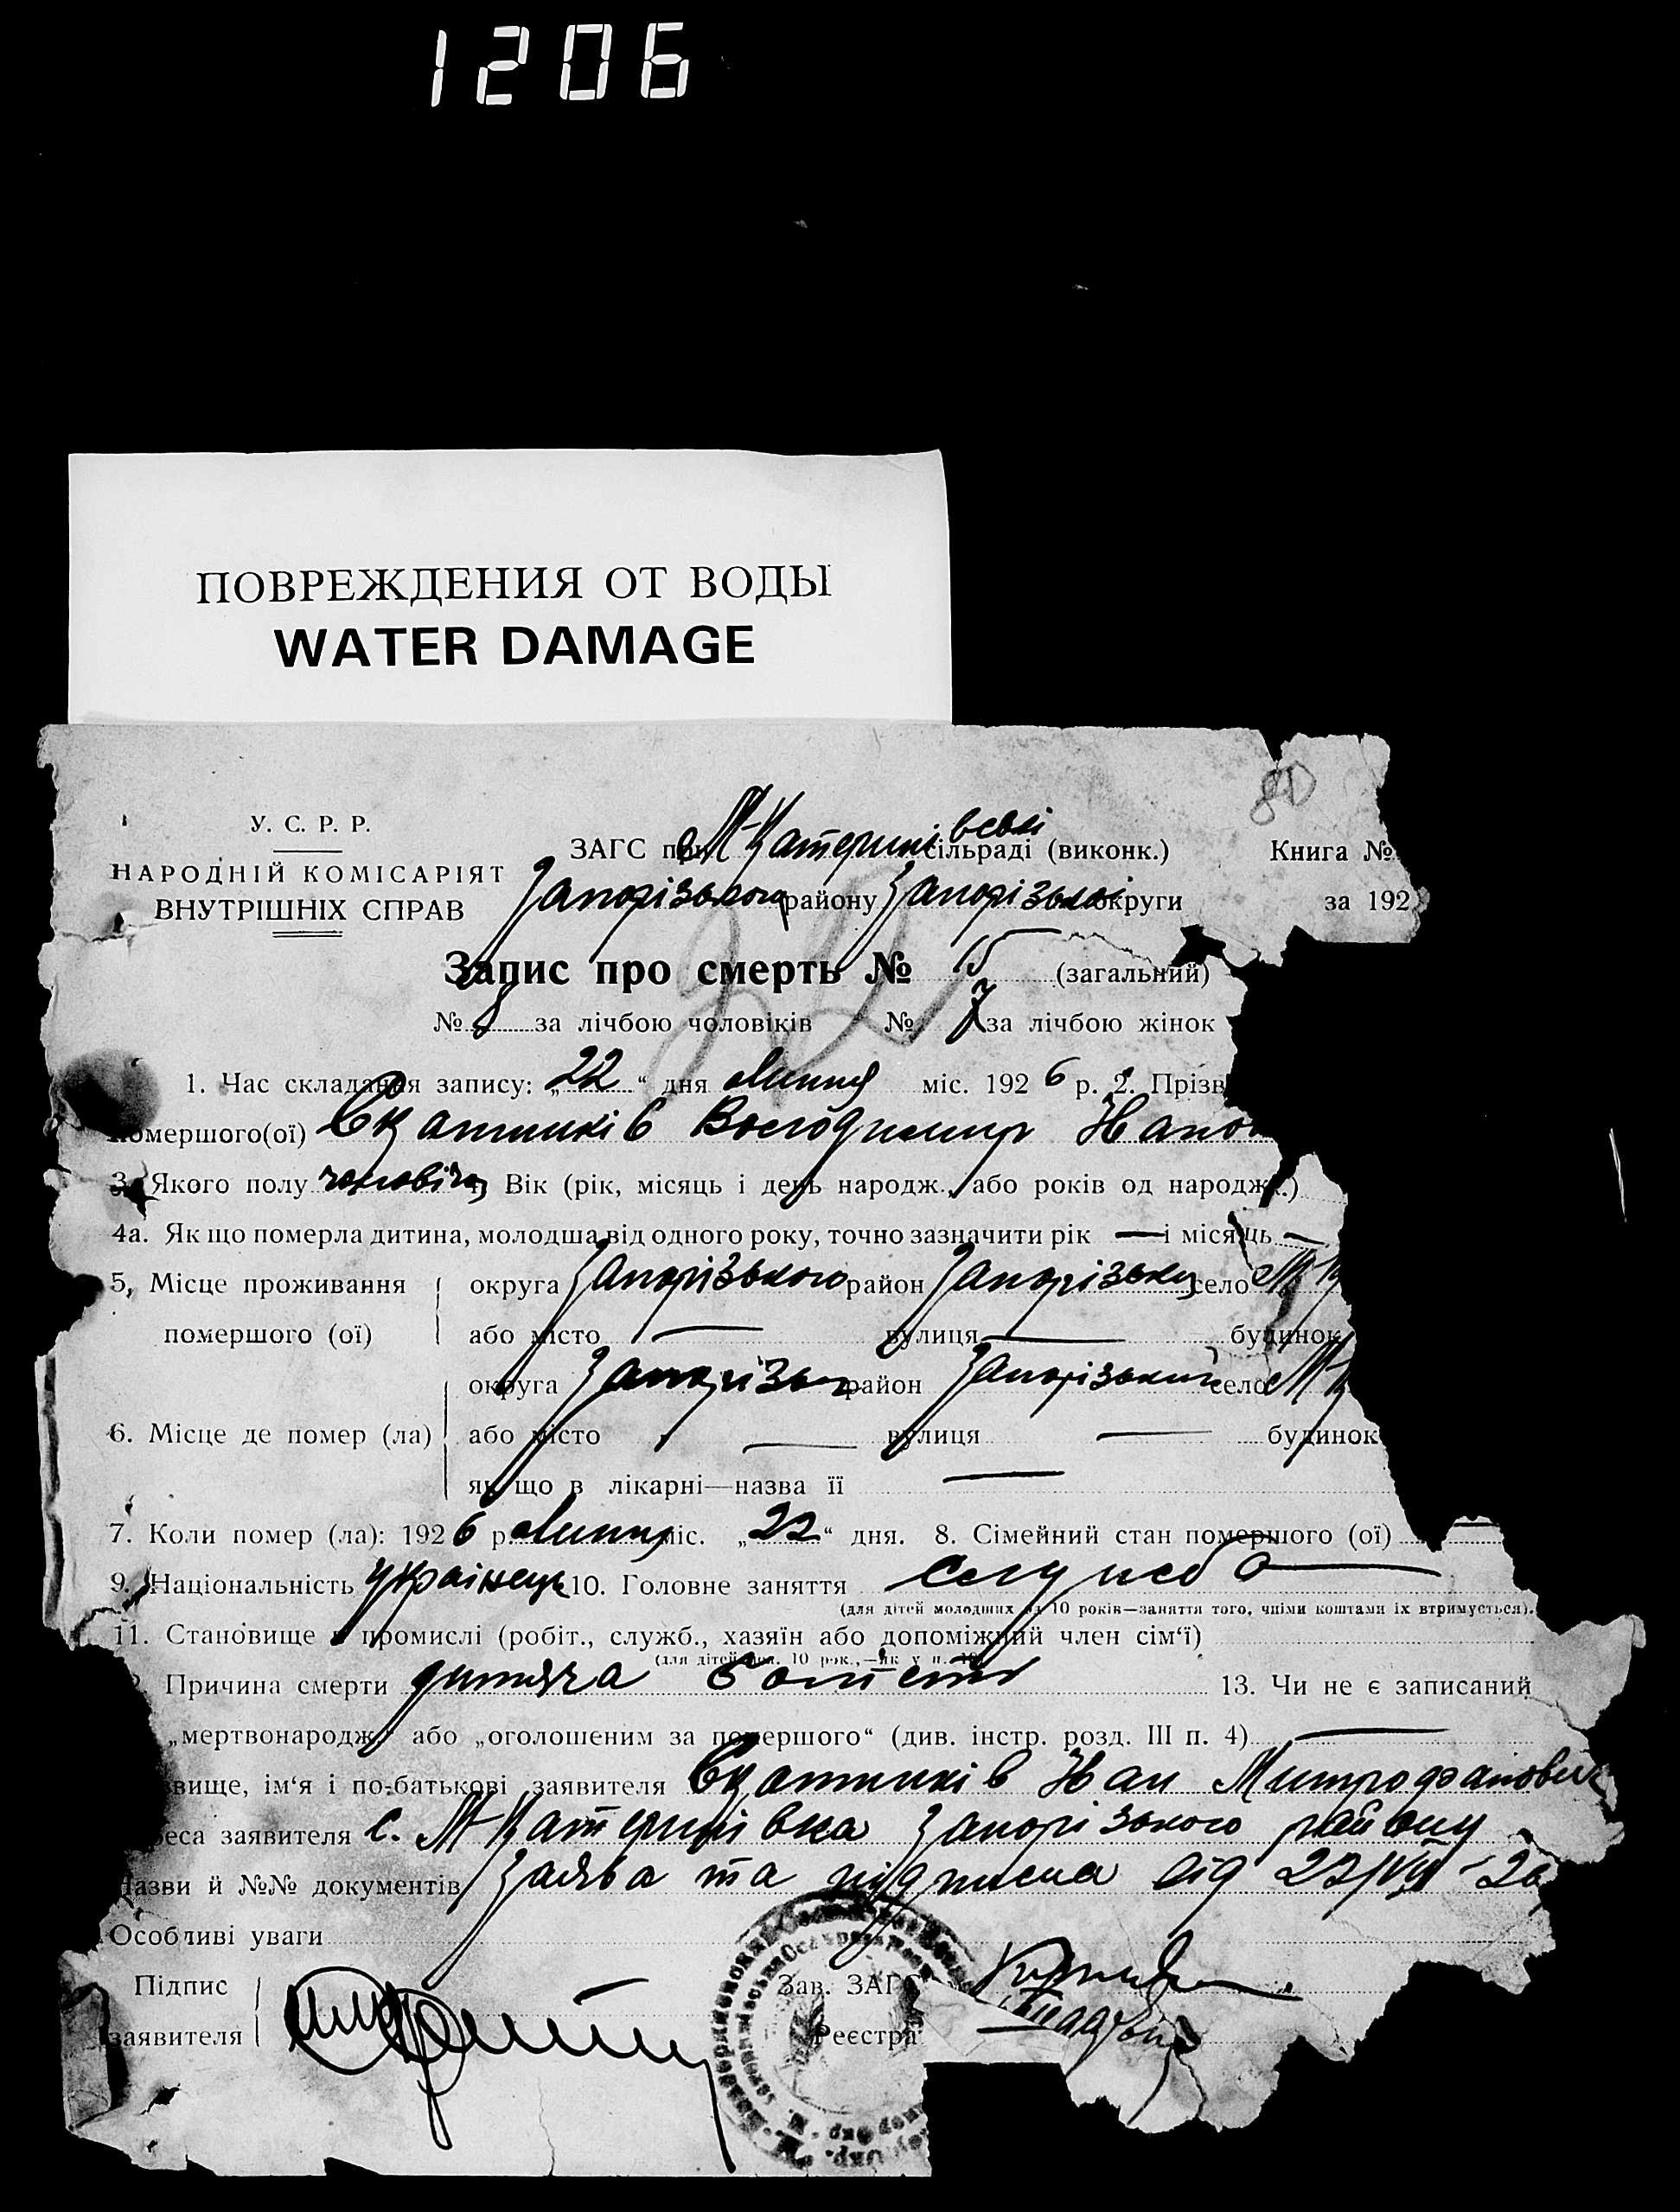 1206
ПОВРЕЖДЕНИЯ ОТ ВОДЫ
WATER DAMAGE
80
У. С. Р. Р.
НАРОДНІЙ КОМІСАРІЯТ
ВНУТРІШНІХ СПРАВ
ЗАГС при М-Катеринівській сільраді (виконк.)
Запорізького району Запорізької округи
Книга №
за 192
Запис про смерть № 15 (загальний)
№ 8 за лічбою чоловіків № 7 за лічбою жінок
1. Час складання запису: „22“ дня липня міс. 1926 р. 2. Прізв
помершого(ої) Володимир
3. Якого полу чоловіча Вік (рік, місяць і день народж., або років од народж.)
4а. Як що померла дитина, молодша від одного року, точно зазначити рік — і місяць —
5, Місце проживання помершого (ої)
округа Запорізького район Запорізьку село М-К
або місто — вулиця — будинок
6. Місце де помер (ла)
округа Запорізьк район Запорізький село М-К
або місто — вулиця — будинок
як що в лікарні—назва її —
7. Коли помер (ла): 1926 р. липня міс. „22“ дня. 8. Сімейний стан помершого (ої)
9. Національність українець 10. Головне заняття
(для дітей молодших од 10 років—заняття того, чиїми коштами їх втримується).
11. Становище в промислі (робіт., служб., хазяїн або допоміжний член сім‘ї)
(для дітей мол. 10 рок.,—як у п. 10)
Причина смерти дитяча 13. Чи не є записаний
„мертвонародж.“ або „оголошеним за помершого“ (див. інстр. розд. III п. 4) —
вище, ім‘я і по-батькові заявителя Митрофанович
реса заявителя с. М-Катеринівка Запорізького району
Назви й №№ документів Заява та підписка від 22/VII-26
Особливі уваги
Підпис заявителя
Зав. ЗАГС
Реєстра